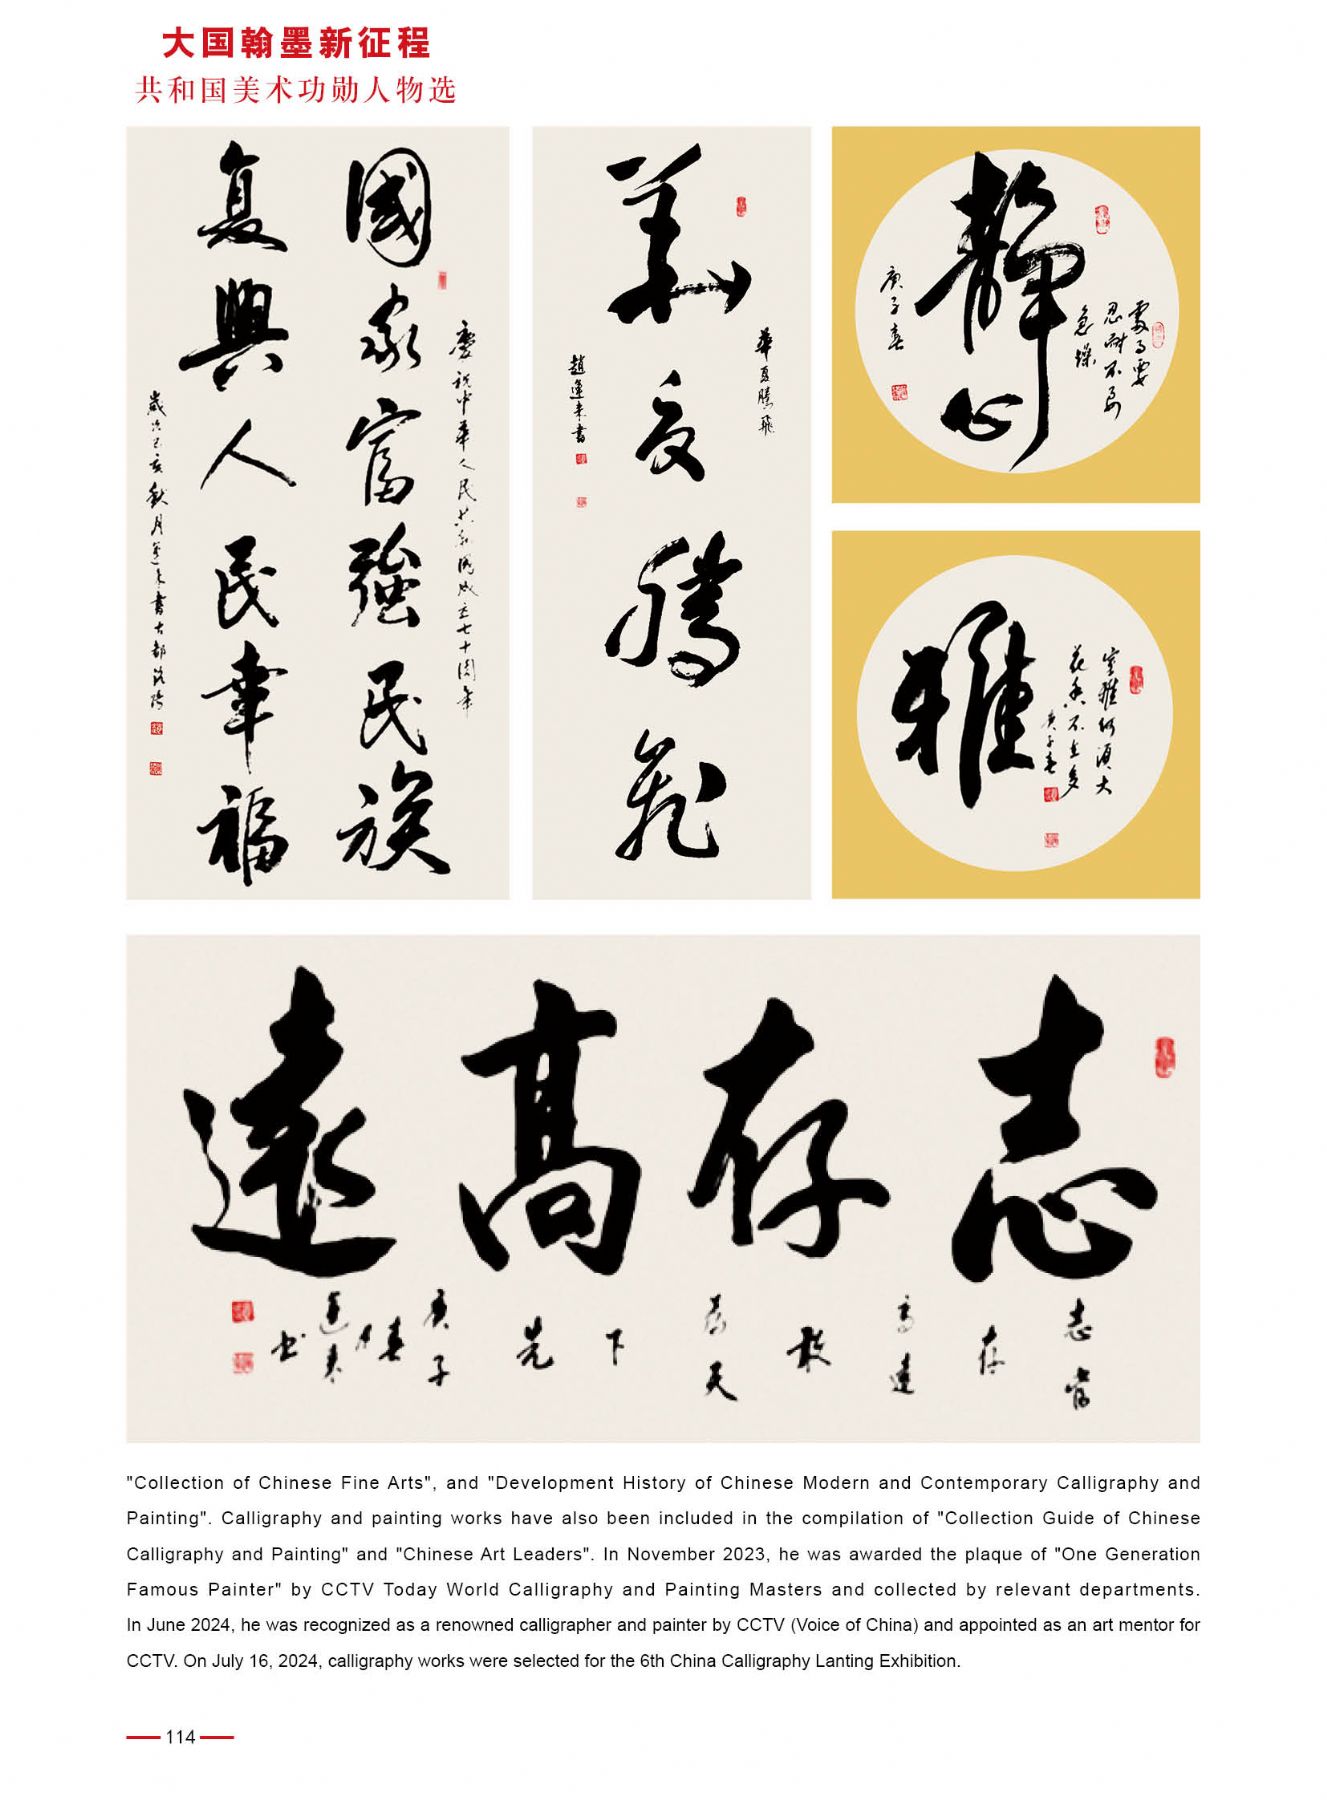 大国翰墨新征程
共和国美术功勋人物选
慶祝中華人民共和國成立七十周年
國家富強民族
复興人民幸福
歲次己亥秋月運來書古都沈陽
華夏騰飛
華夏騰飛
趙運來書
處事要
忍耐不可
急躁
靜心
庚子春
室雅何須大
花香不在多
庚子春
雅
志存高遠
志當
存
高遠
故
天
下
先
庚子
春
運來
书
"Collection of Chinese Fine Arts", and "Development History of Chinese Modern and Contemporary Calligraphy and
Painting". Calligraphy and painting works have also been included in the compilation of "Collection Guide of Chinese
Calligraphy and Painting" and "Chinese Art Leaders". In November 2023, he was awarded the plaque of "One Generation
Famous Painter" by CCTV Today World Calligraphy and Painting Masters and collected by relevant departments.
In June 2024, he was recognized as a renowned calligrapher and painter by CCTV (Voice of China) and appointed as an art mentor for
CCTV. On July 16, 2024, calligraphy works were selected for the 6th China Calligraphy Lanting Exhibition.
114